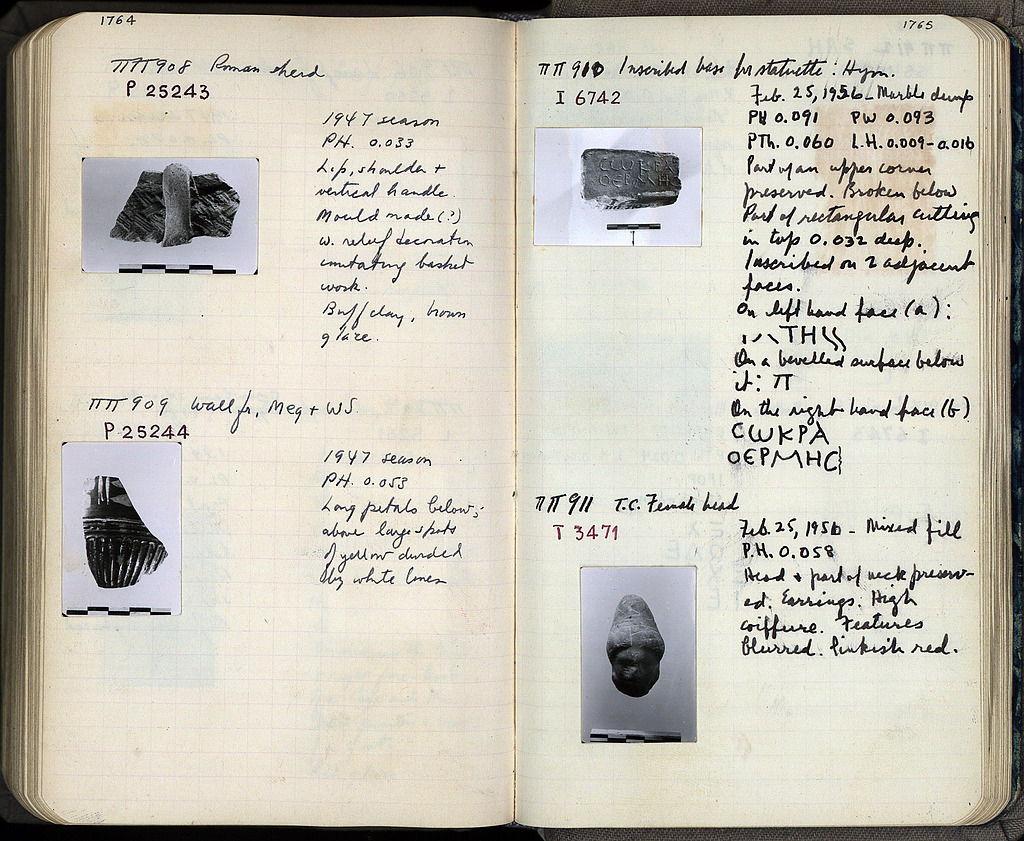 1764
ΠΠ 908 Roman sherd
P 25243
1947 season
PH. 0.033
Lip, shoulder +
vertical handle.
Mould made (?)
w. relief decoration
imitating basket
work.
Buff clay, brown
glaze.
ΠΠ 909 Wall fr, Meg + WS.
P 25244
1947 season
PH. 0.053
Long petals below;
above large spots
of yellow divided
by white lines
1765
ΠΠ 910 Inscribed base for statuette: Hym.
I 6742
Feb. 25, 1956 - Marble dump
PH 0.091 PW 0.093
PTh. 0.060 L.H. 0.009-0.016
Part of an upper corner
preserved. Broken below
Part of rectangular cutting
in top 0.032 deep.
Inscribed on 2 adjacent
faces.
On left hand face (a):
ΤΗ
On a bevelled surface below
it: Π
On the right hand face (b)
CѠΚΡΑ
ΟЄΡΜΗC
ΠΠ 911 T.C. Female head
T 3471
Feb. 25, 1956 - Mixed fill
P.H. 0.058
Head + part of neck preserv-
ed. Earrings. High
coiffure. Features
blurred. Pinkish red.